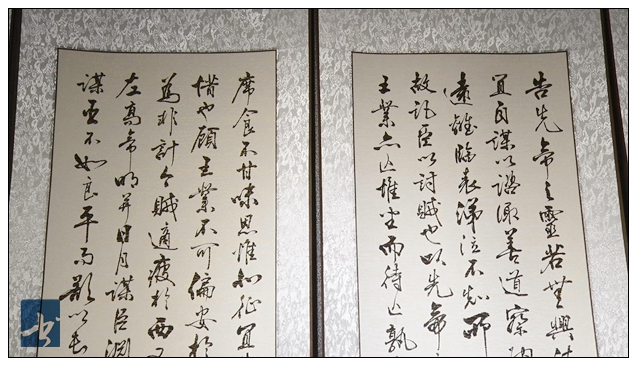 告先帝之靈若無興
宜自謀以諮諏善道察納
遠離臨表涕泣不知所
故託臣以討賊也以先帝
王業亦亡惟坐而待亡孰
席食不甘味思惟北征宜
惜也顧王業不可偏安於
為非計今賊適疲於西又
左高帝明并日月謀臣淵
謀臣不如良平而欲以長